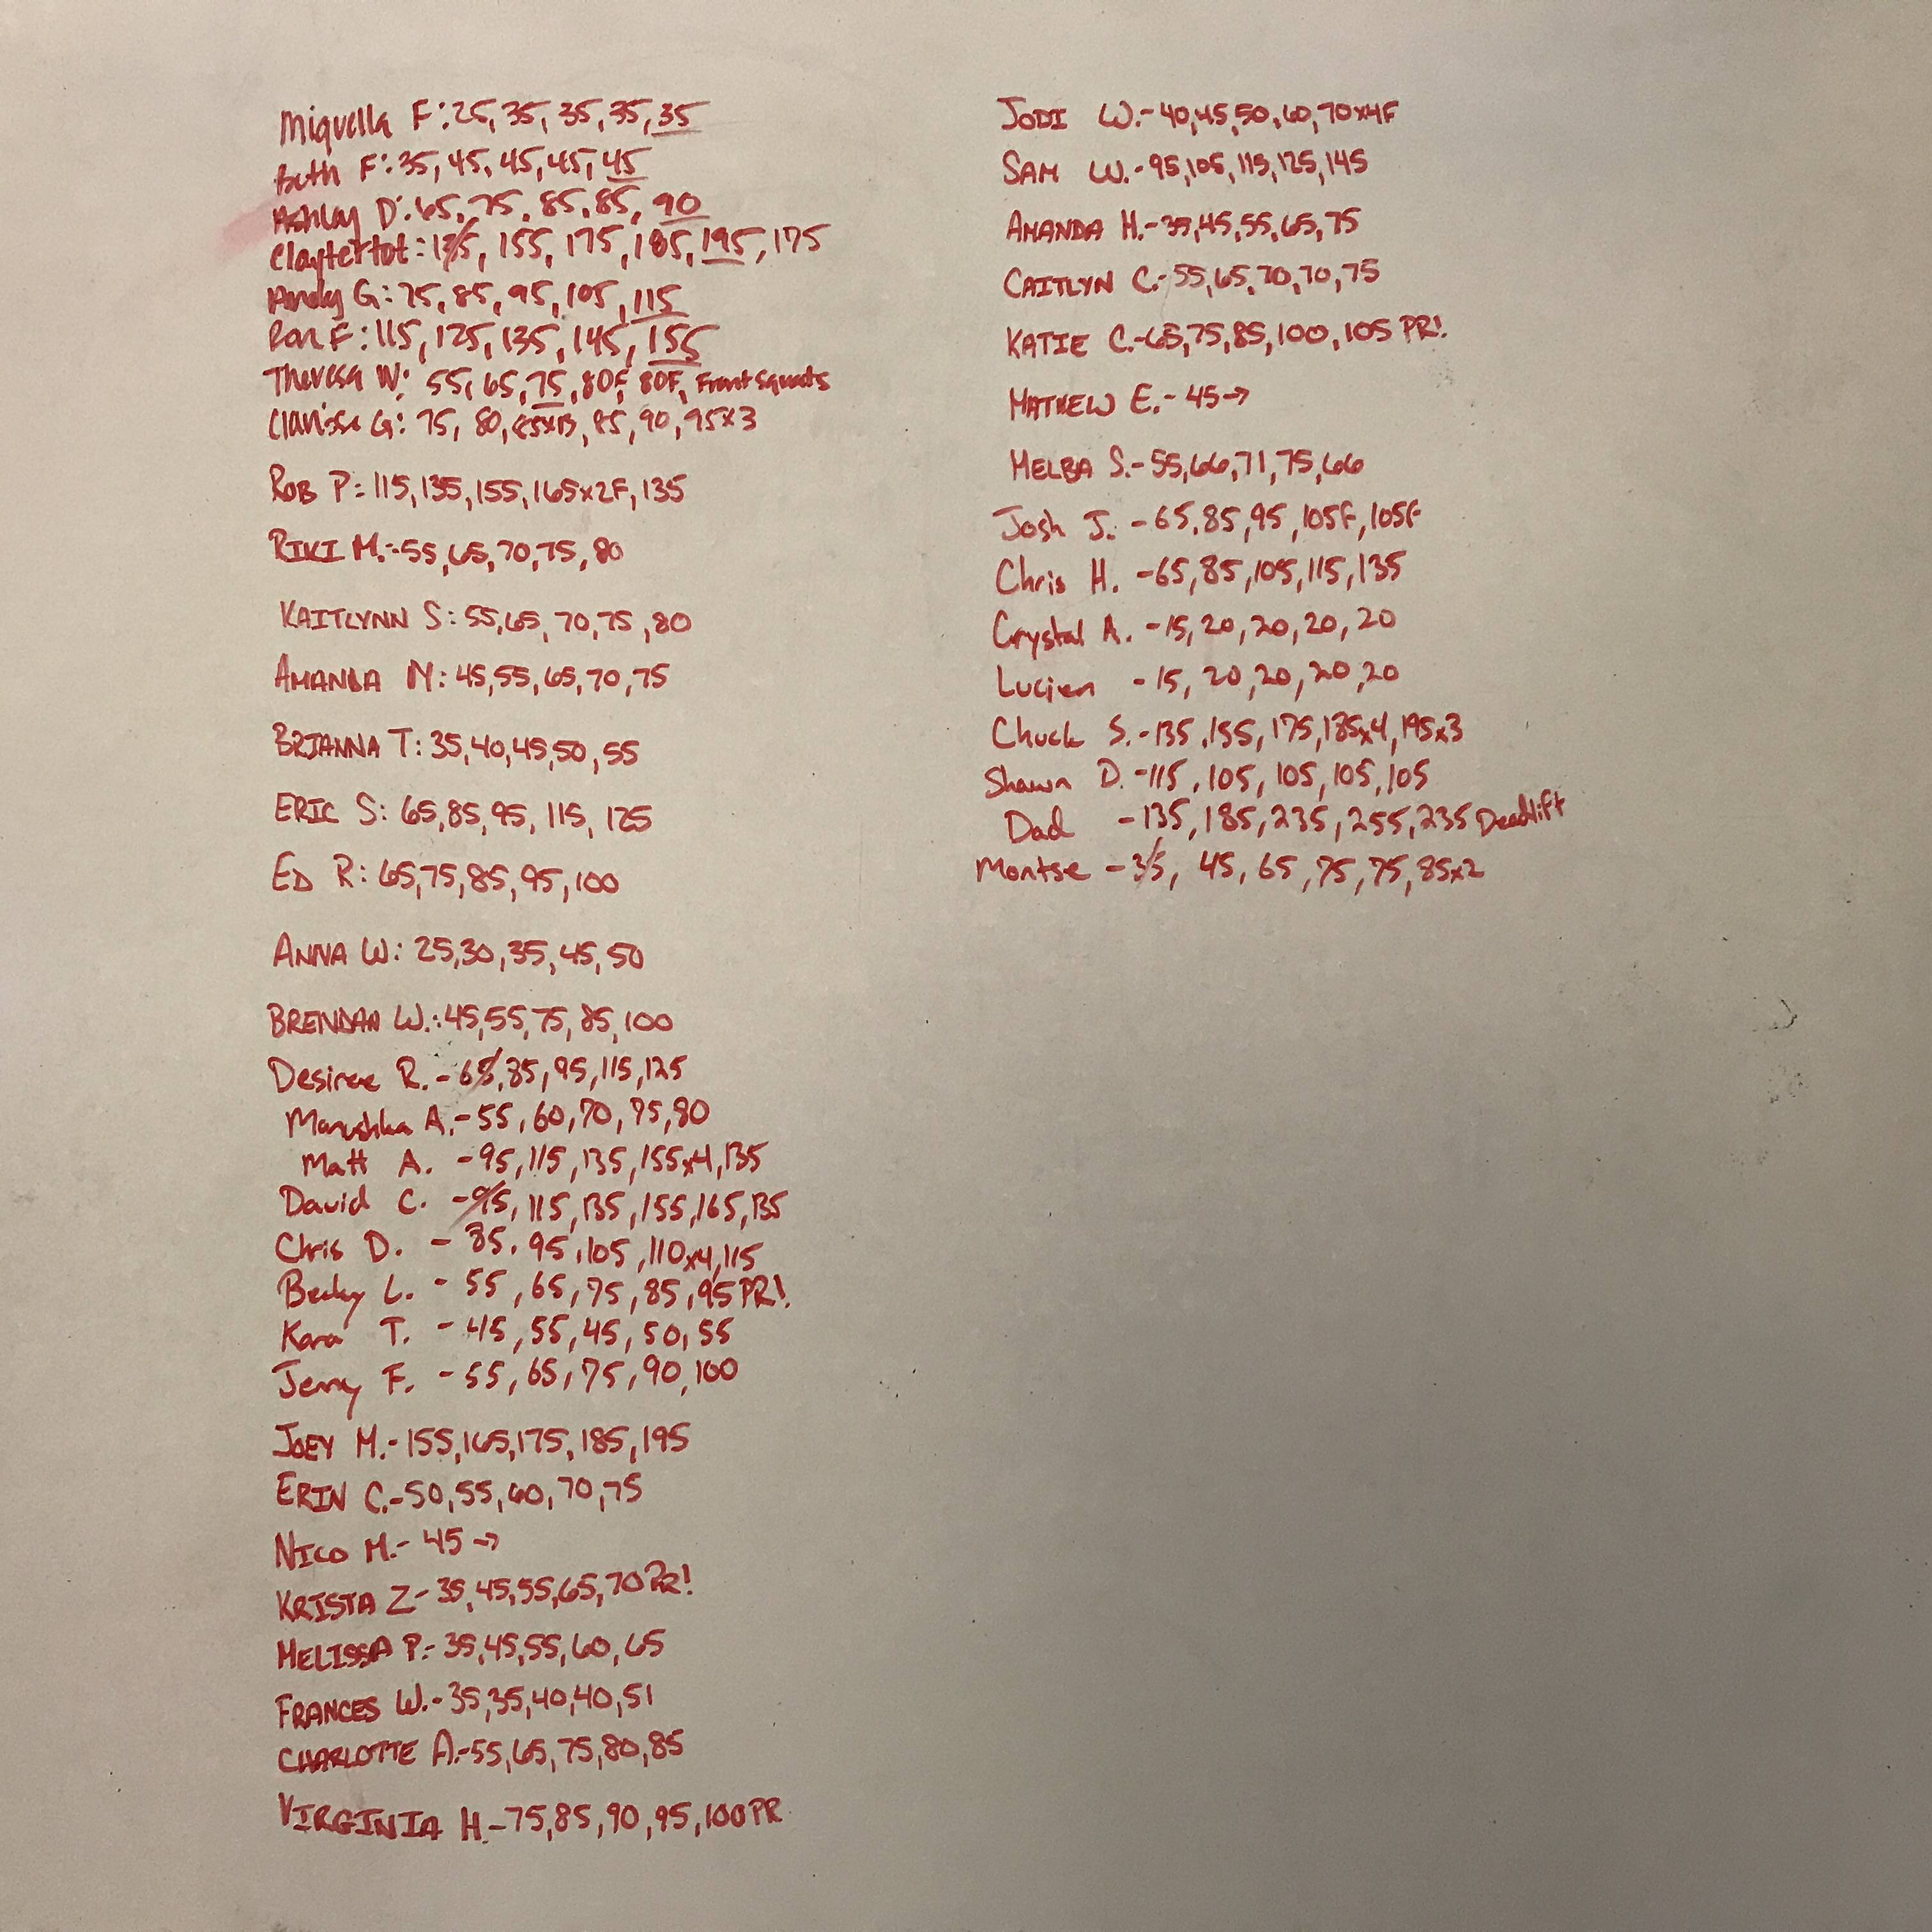 Miquella F: 25, 35, 35, 35, 35
Beth F: 35, 45, 45, 45, 45
Ashley D: 65, 75, 85, 85, 90
Claytertot: 135, 155, 175, 185, 195, 175
Andy G: 75, 85, 95, 105, 115
Ron F: 115, 125, 135, 145, 155
Theresa W: 55, 65, 75, 80F, 80F, Front Squats
Clarissa G: 75, 80, 85x13, 85, 90, 95x3
ROB P: 115, 135, 155, 165x2F, 135
RIKI M.-55, 65, 70, 75, 80
KAITLYNN S: 55, 65, 70, 75, 80
AMANDA N: 45, 55, 65, 70, 75
BRIANNA T: 35, 40, 45, 50, 55
ERIC S: 65, 85, 95, 115, 125
ED R: 65, 75, 85, 95, 100
ANNA W: 25, 30, 35, 45, 50
BRENDAN W.: 45, 55, 75, 85, 100
Desiree R. - 65, 85, 95, 115, 125
Marushka A. - 55, 60, 70, 75, 80
Matt A. - 95, 115, 135, 155x4, 135
David C. - 95, 115, 135, 155, 165, 135
Chris D. - 85, 95, 105, 110x4, 115
Becky L. - 55, 65, 75, 85, 95 PR!
Kara T. - 45, 55, 45, 50, 55
Jenny F. - 55, 65, 75, 90, 100
JOEY M.- 155, 165, 175, 185, 195
ERIN C.- 50, 55, 60, 70, 75
NICO M.- 45 →
KRISTA Z- 35, 45, 55, 65, 70 PR!
MELISSA P.- 35, 45, 55, 60, 65
FRANCES W.- 35, 35, 40, 40, 51
CHARLOTTE A.- 55, 65, 75, 80, 85
VIRGINIA H.- 75, 85, 90, 95, 100 PR
JODI W.- 40, 45, 50, 60, 70x4F
SAM W.- 95, 105, 115, 125, 145
AMANDA H.- 35, 45, 55, 65, 75
CAITLYN C.- 55, 65, 70, 70, 75
KATIE C.- 65, 75, 85, 100, 105 PR!
MATHEW E.- 45 →
MELBA S.- 55, 66, 71, 75, 66
Josh J. - 65, 85, 95, 105F, 105F
Chris H. - 65, 85, 105, 115, 135
Crystal A. - 15, 20, 20, 20, 20
Lucien - 15, 20, 20, 20, 20
Chuck S. - 135, 155, 175, 185x4, 195x3
Shawn D. - 115, 105, 105, 105, 105
Dad - 135, 185, 235, 255, 235 Deadlift
Montse - 35, 45, 65, 75, 75, 85x2